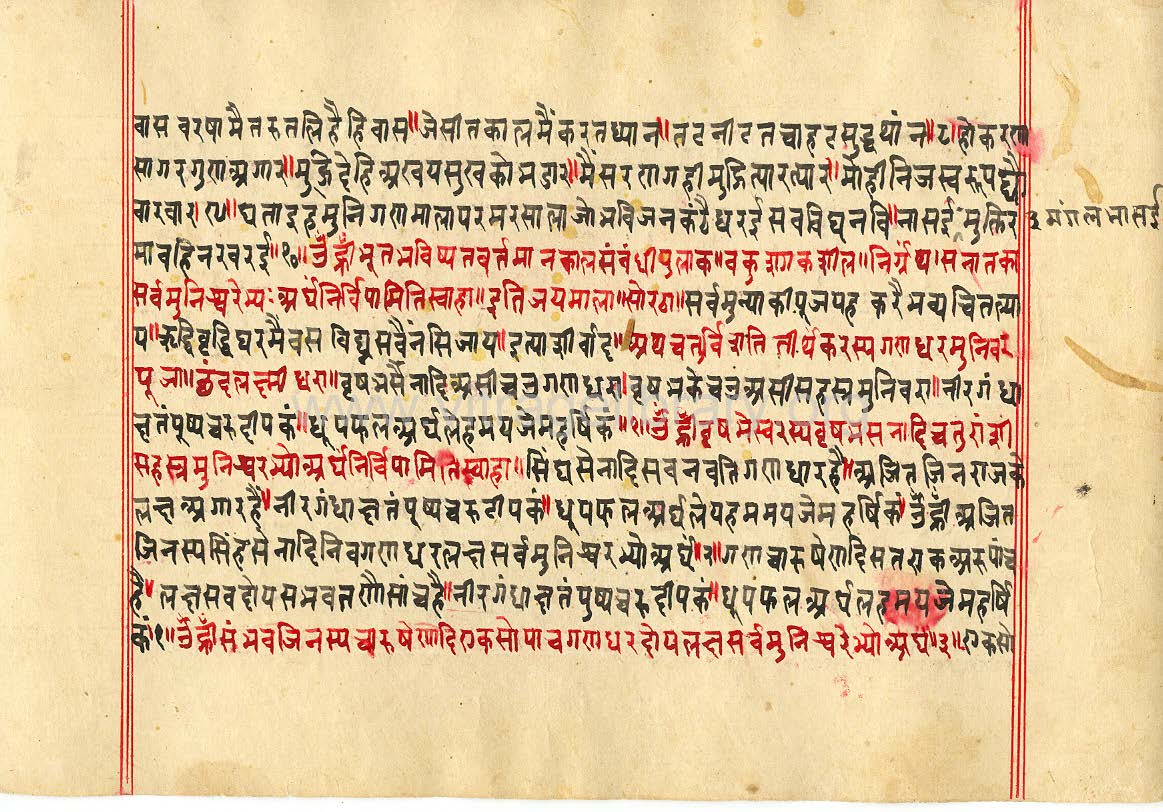 वास वरषामै तरुतलि है हि वास॥जे सीतकालमैं करत ध्यान॥तटनीटतचाहटसुद्धथांन॥८॥हो करुणा
सागर गुणअगार॥मुझि देहि अखयसुखको भडार॥मै सरणगही मुझि त्यार त्यार॥मोही निजस्वरूप द्यौ
वारवार॥९॥घता॥इहमुनिगणमाला परमरसाला जो भविजन कंठै धरई सव विघनवि॥नासई मुक्तिर
३ मंगलभासई
मा वहि नर वरई॥१०॥ॐह्रीं भूतभविष्यतवर्तमानकालसंवंधी पुलाक॥वकुशाकुशील॥निर्ग्रंथ॥सनातका
सर्वमुनिश्वरेभ्यः अर्घं निर्विपामिति स्वाहा॥इति जयमाला॥सोरठा॥सर्वमुन्याकी पूज पह करै भव्य चित त्या
य॥ऋद्धि वृद्धि घरमै वस विघ्न सवै नसि जाय॥इत्याशीर्वाद॥अथ चतुर्विंशति तीर्थंकरस्य गणधरमुनिवर
पूजा॥छंद लक्ष्मीधरा॥वृषभसैनादि असी चउ गणधरा॥वृषभके चउ असी सहस मुनिवरा॥नीरगंधा
क्षतं पुष्प चरु दीपकं॥धूप फल अर्घ ले हम यजे महर्षिकं॥१॥ॐह्रीं वृषभेस्वरस्य वृषभसेनादि चतुराशी
सहस्त्र मुनिश्वरभ्यो अर्घं निर्विपामिति स्वाहा॥सिंघसेनादि सव नवति गणधार है॥अजित जिनराजके
लक्ष अगार है॥नीरगंधाक्षतं पुष्प चरु दीपकं॥धूप फल अर्घ ले पह मम यजे महर्षिकं॥ॐह्रीं अजित
जिनस्य सिंहसेनादि निवगणधर लक्ष सर्व मुनिश्वरभ्यो अर्घं॥२॥गण चारुषेणादि सत एक अरु पांच
है॥लक्ष सव दोय संभवतणै सांच है॥नीरगंधाक्षतं पुष्प चरु दीपकं॥धूप फल अर्घ ले हम यजे महर्षि
कं॥१॥ॐह्रीं संभवजिनस्य चारुषेणादि एकसोपाच गणधर दोय लक्ष सर्वमुनिश्वरेभ्यो अर्घं॥३॥एकसो
www.vitragelibrary.org